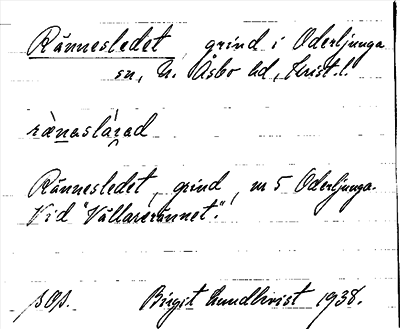 Rännesledet, grind i Oderljunga
sn, N. Åsbo hd, Krist. l.
rànaslá̀rad
Rännesledet, grind, nr 5 Oderljunga.
Vid "Vållarerännet".
pop. Birgit Lundkvist 1938.